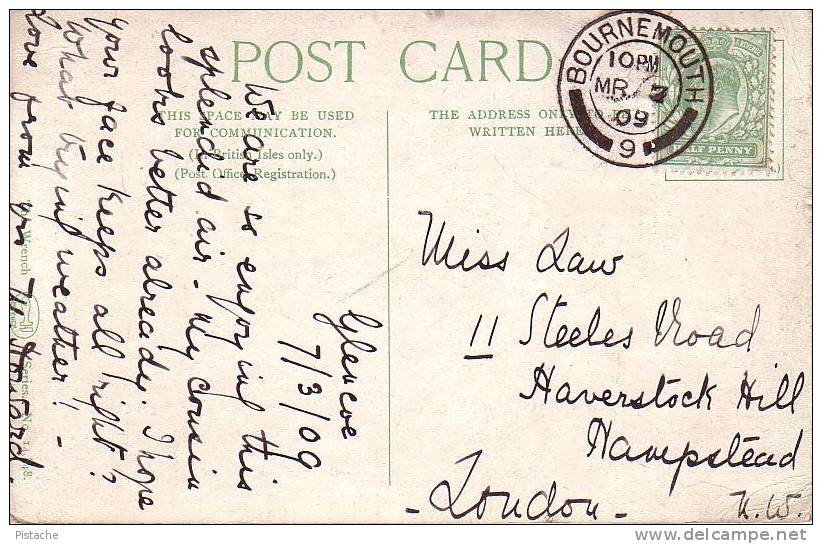 POST CARD
THIS SPACE MAY BE USED
FOR COMMUNICATION.
(In British Isles only.)
(Post Office Registration.)
THE ADDRESS ONLY TO BE
WRITTEN HERE
BOURNEMOUTH
10 PM
MR 7
09
9
HALF PENNY
Glencoe
7/3/09
We are so enjoying this
splendid air - My cousin
looks better already. I hope
your face keeps all right?
What trying weather! -
love from yrs
Miss Law
11 Steeles Road
Haverstock Hill
Hampstead
- London - N.W.
Wrench
Series, No.
Pistache
www.delcampe.net